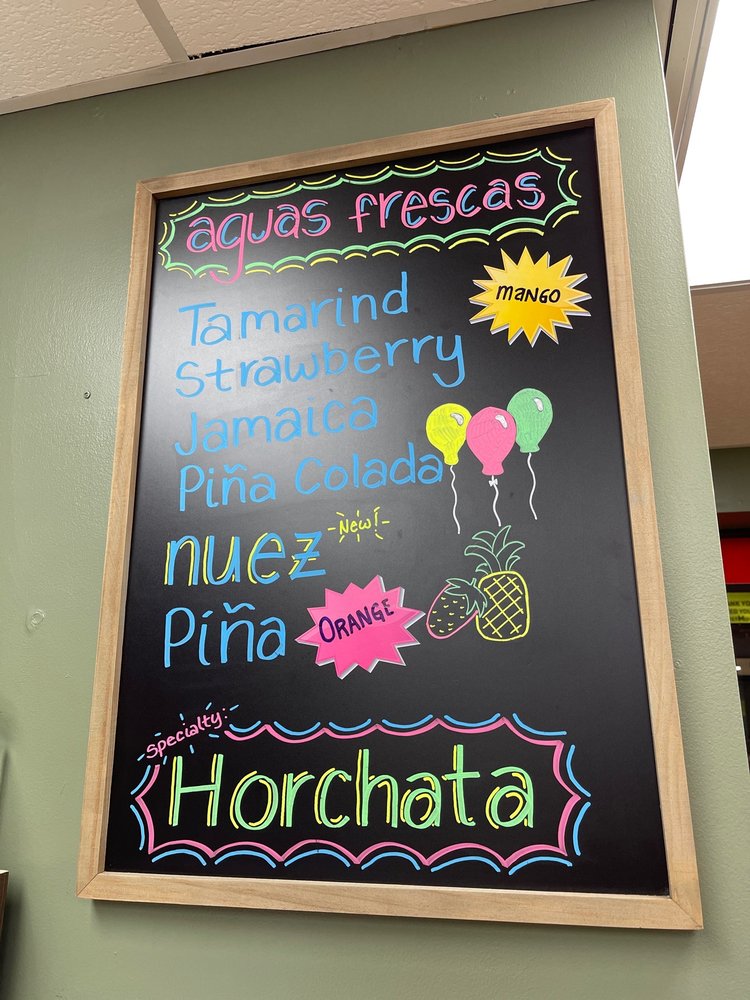 aguas frescas
MANGO
Tamarind
Strawberry
Jamaica
Piña Colada
nuez
New!
Piña
ORANGE
Specialty:
Horchata